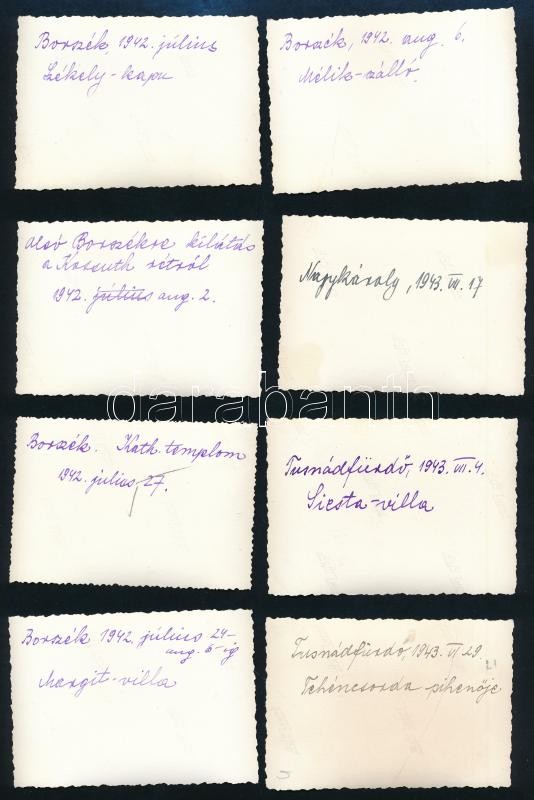 Borszék, 1942. július
Székely-kapu
Borszék, 1942. aug. 6.
Mélik-szálló.
Alsó Borszékre kilátás
a Kossuth rétról
1942. július aug. 2.
Nagykároly, 1943. VII. 17
darabanth
Borszék. Kath. templom
1942. július 27.
Tusnádfürdő, 1943. VII. 4.
Siesta-villa
Borszék 1942. július 24-
aug. 6-ig
Margit-villa
Tusnádfürdő, 1943. VI 29.
21
Tehéncsorda pihenője